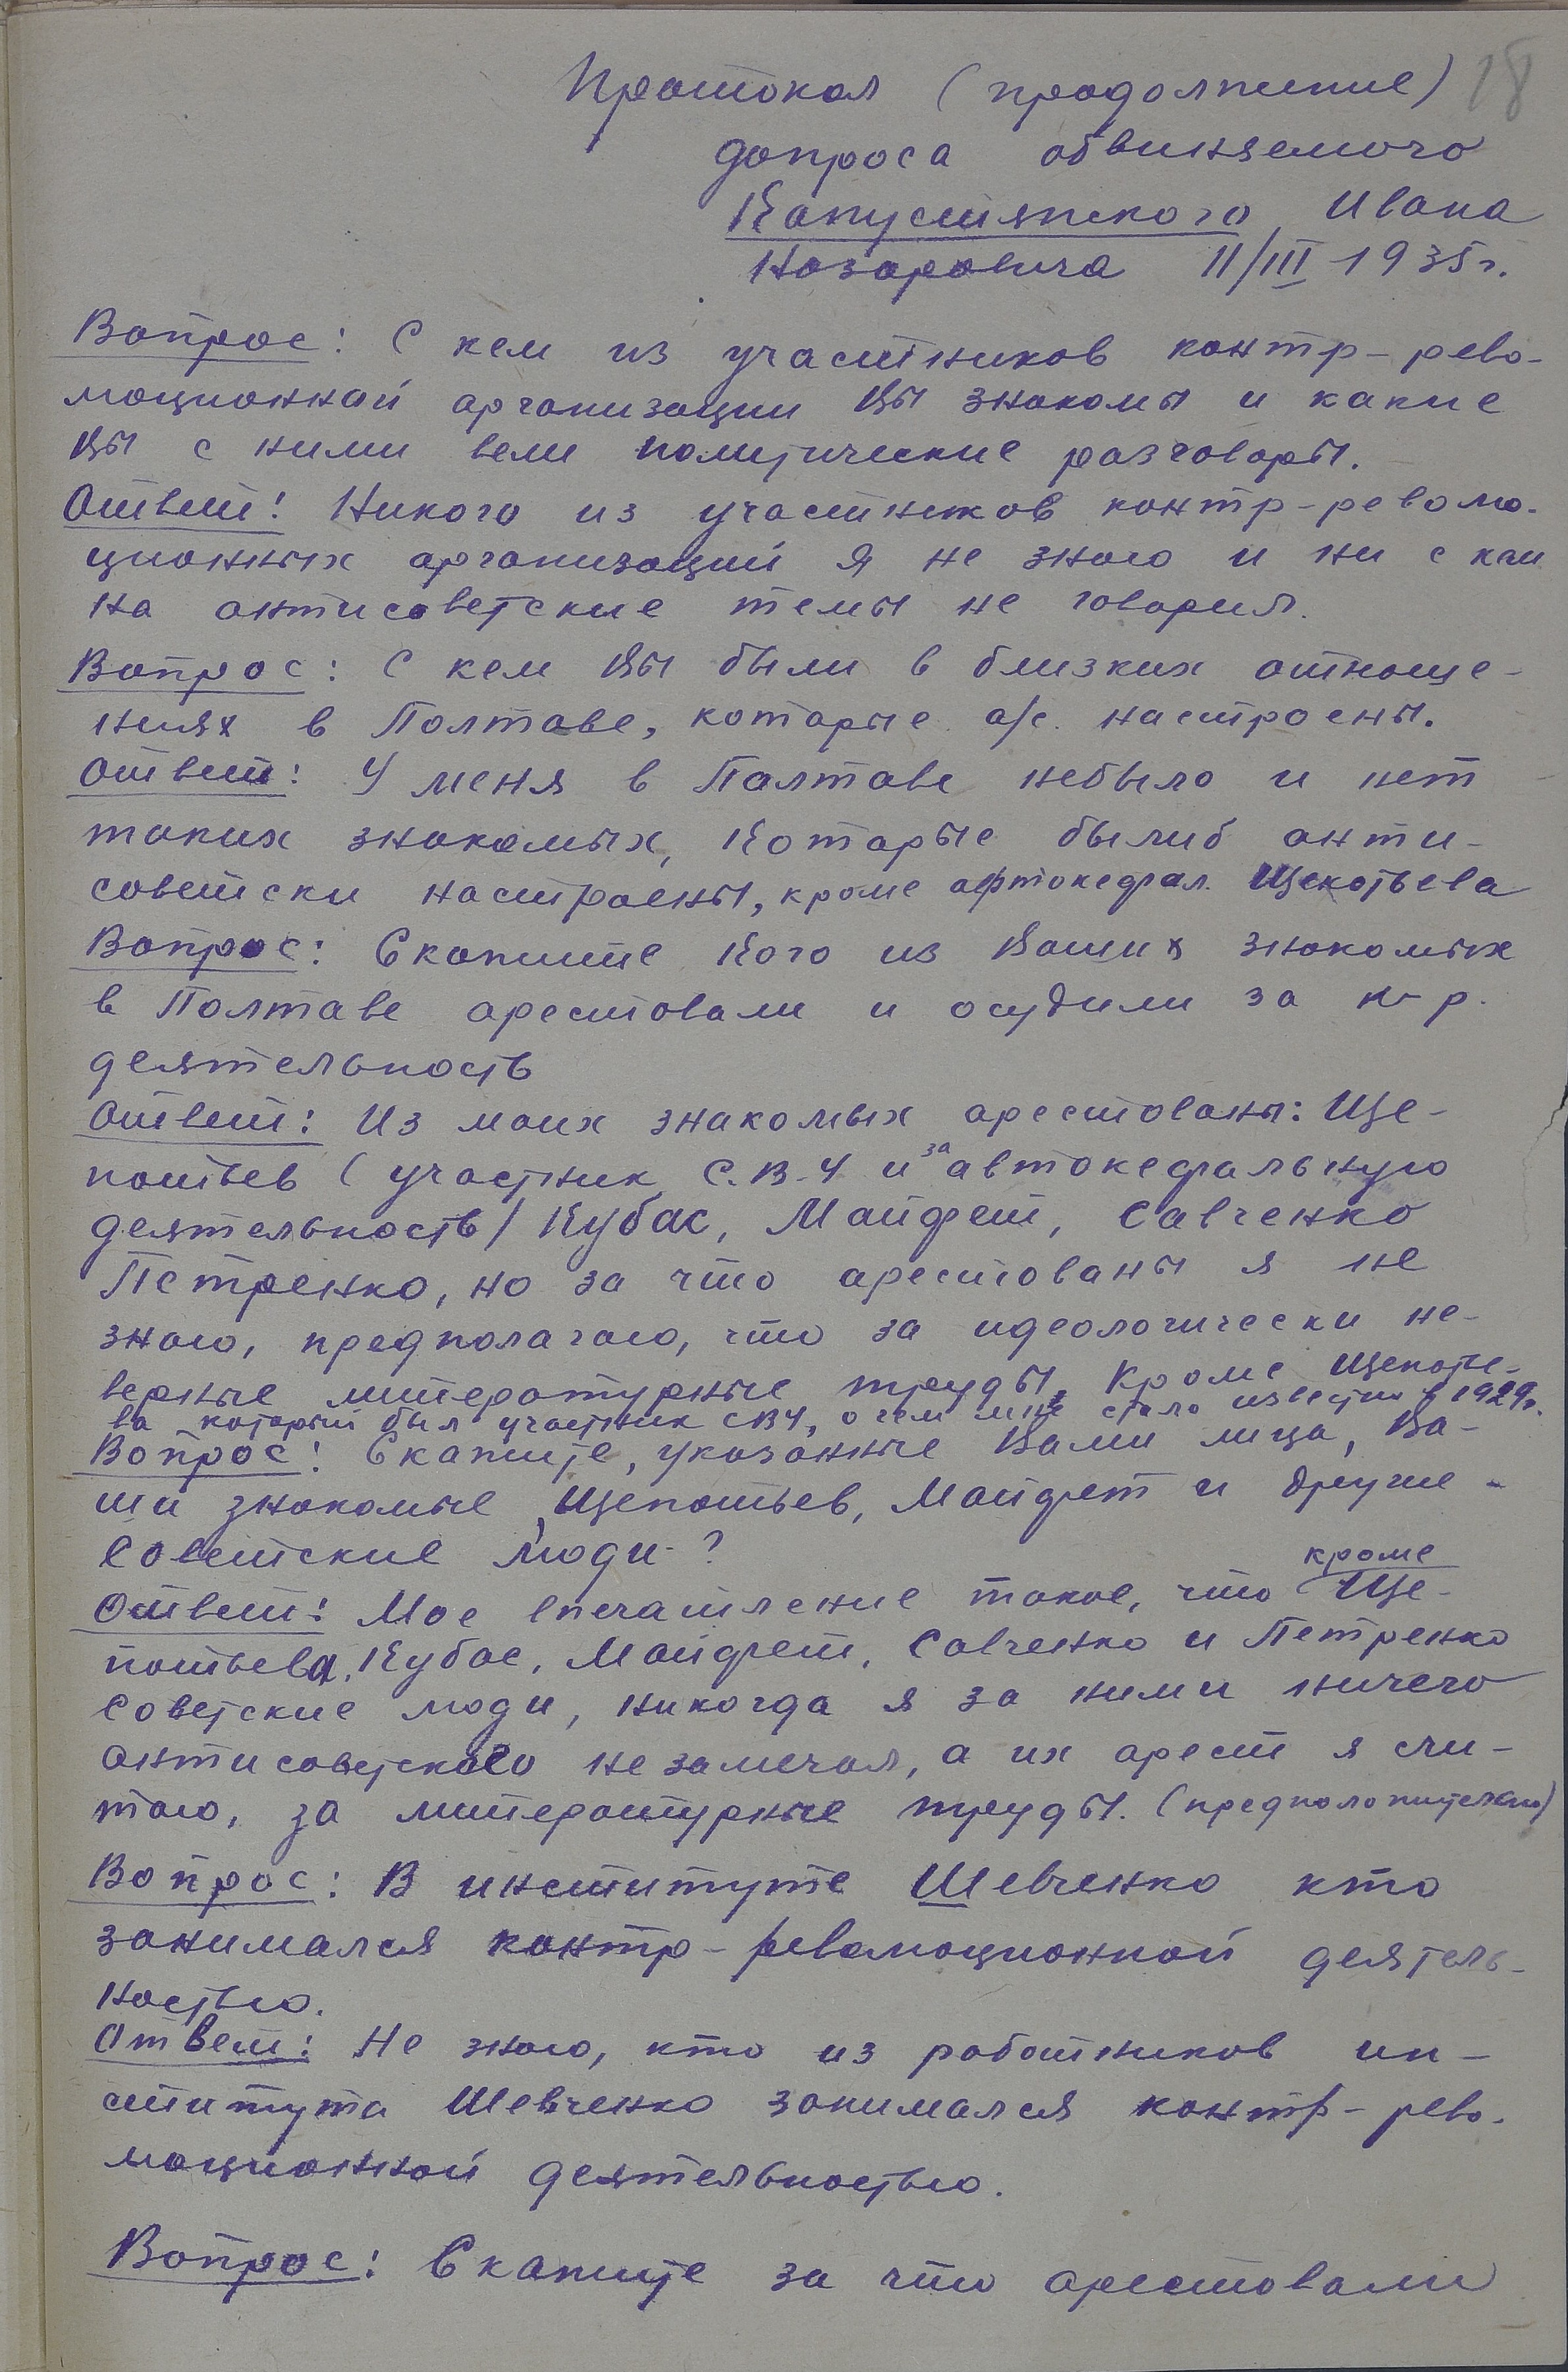 18
Протокол (продолжение)
допроса обвиняемого
Капустянского Ивана
Назаровича 11/III 1935г.
Вопрос: С кем из участников контр-рево-
люционной организации Вы знакомы и какие
Вы с ними вели политические разговоры.
Ответ: Никого из участников контр-револю-
ционных организаций я не знаю и ни с кем
на антисоветские темы не говорил.
Вопрос: С кем Вы были в близких отноше-
ниях в Полтаве, которые а/с. настроены.
Ответ: У меня в Полтаве небыло и нет
таких знакомых, которые былиб анти-
советски настроены, кроме афтокефал. Щекотьева
Вопрос: Скажите кого из Ваших знакомых
в Полтаве арестовали и осудили за к-р.
деятельность
Ответ: Из моих знакомых арестованы: Ще-
потьев (участник С.В.У и за автокефальную
деятельность) Кубас, Майфет, Савченко
Петренко, но за что арестованы я не
знаю, предполагаю, что за идеологически не-
верные литературные труды, кроме Щепоть-
ева который был участник СВУ, о чем мне стало известно в 1929г.
Вопрос: Скажите, указанные Вами лица, Ва-
ши знакомые Щепотьев, Майфет и другие -
Советские люди-?
Ответ: Мое впечатление такое, что кроме Ще-
потьева, Кубас, Майфет, Савченко и Петренко
Советские люди, никогда я за ними ничего
антисоветского незамечал, а их арест я счи-
таю, за литературные труды. (предположительно)
Вопрос: В институте Шевченко кто
занимался контр-революционной деятель-
ностью.
Ответ: Не знаю, кто из работников ин-
ститута Шевченко занимался контр-рево-
люционной деятельностью.
Вопрос: Скажите за что арестовали